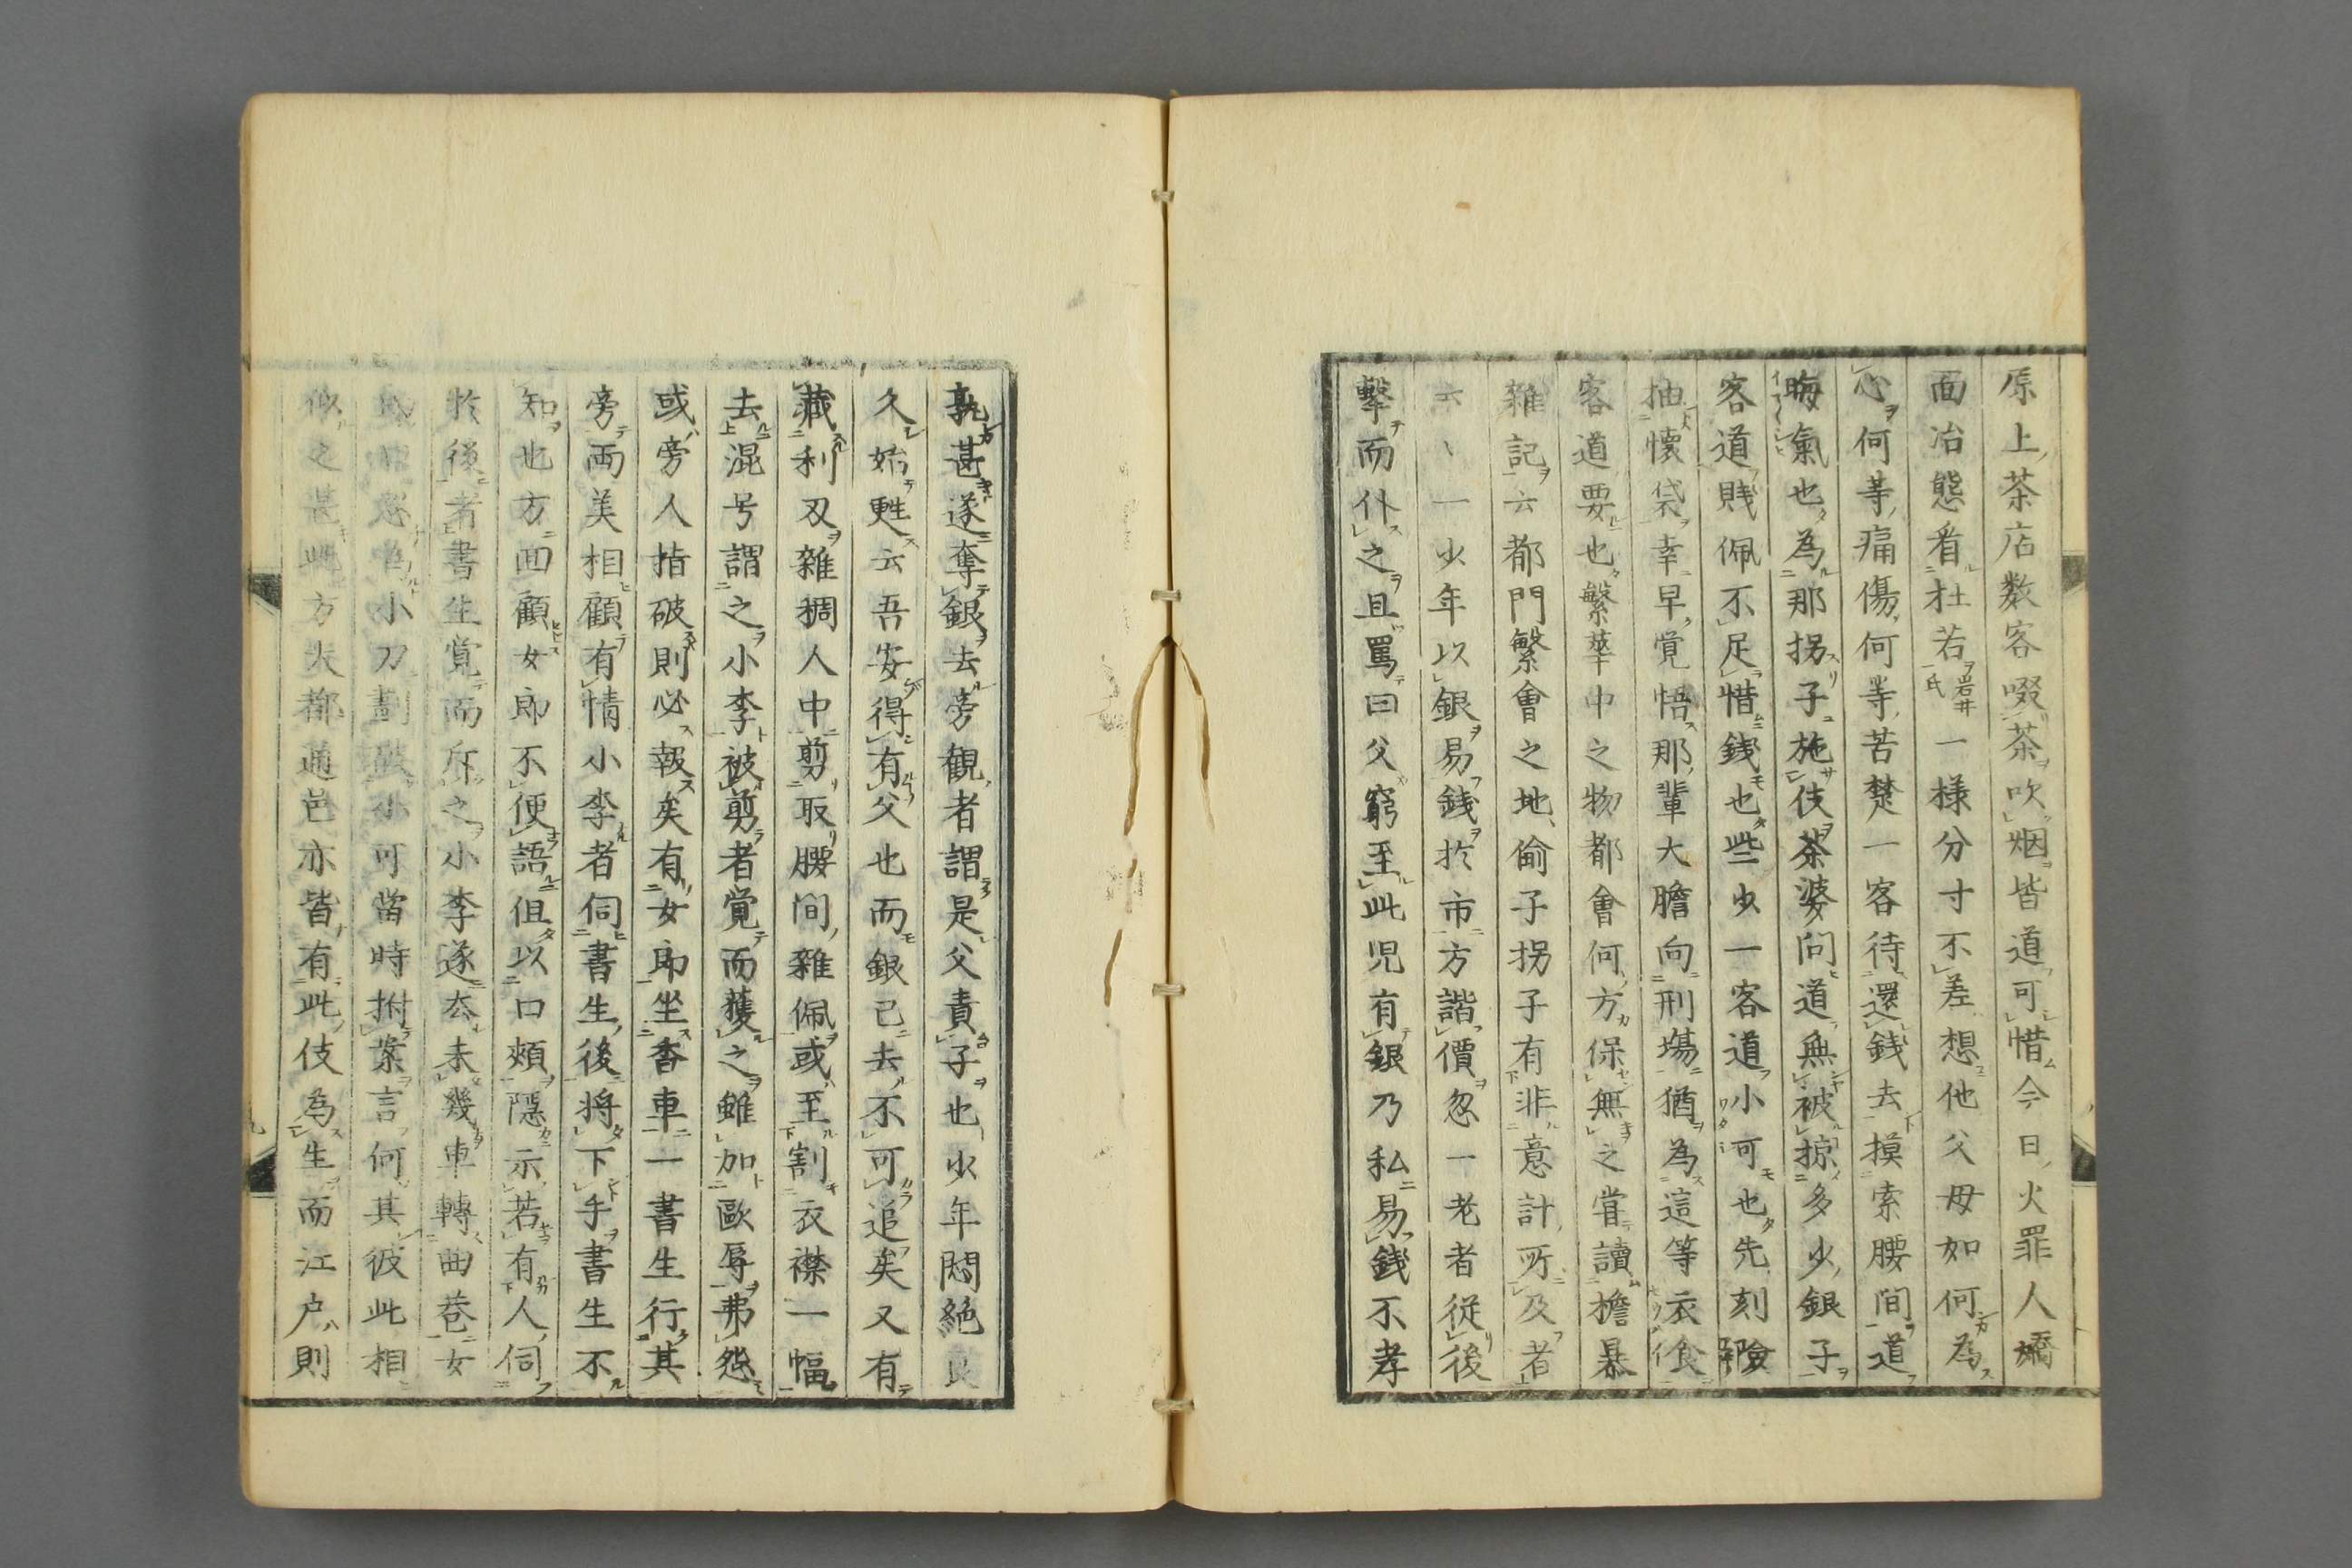 原上茶店数客啜茶吹烟皆道可惜今日火罪人嬌
面冶態看杜若岩井氏一様分寸不差想他父母如何為
心何等痛傷何等苦楚一客待還錢去摸索腰間道
晦氣也為那拐子施伎茶婆問道無被掠多少銀子
客道賎佩不足惜錢也些少一客道小可也先刻險
抽懐袋幸早覚悟那輩大膽向刑場猶為這等衣食
客道要也繁華中之物都會何方保無之甞讀擔暴
雜記云都門繁會之地偷子拐子有非意計所及者
云〻一少年以銀易錢於市方諧價忽一老者従後
擊而仆之且罵曰父窮至此児有銀乃私易錢不孝
孰甚遂奪銀去旁観者謂是父責子也少年悶絶良
久始甦云吾安得有父也而銀已去不可追矣又有
藏利刃雜稠人中剪取腰間雜佩或至割衣襟一幅
去混号謂之小李被剪者覚而獲之雖加歐辱弗怨
或旁人指破則必報矣有女郎坐香車一書生行其
旁両美相顧有情小李者伺書生後将下手書生不
知也方回顧女郎不便語但以口頰隠示若有人伺
於後者書生覚而斥之小李遂去未幾車轉曲巷女
小刀劃破小可當時拊案言何其彼此相
似之甚此方大都通邑亦皆有此伎為生而江戸則